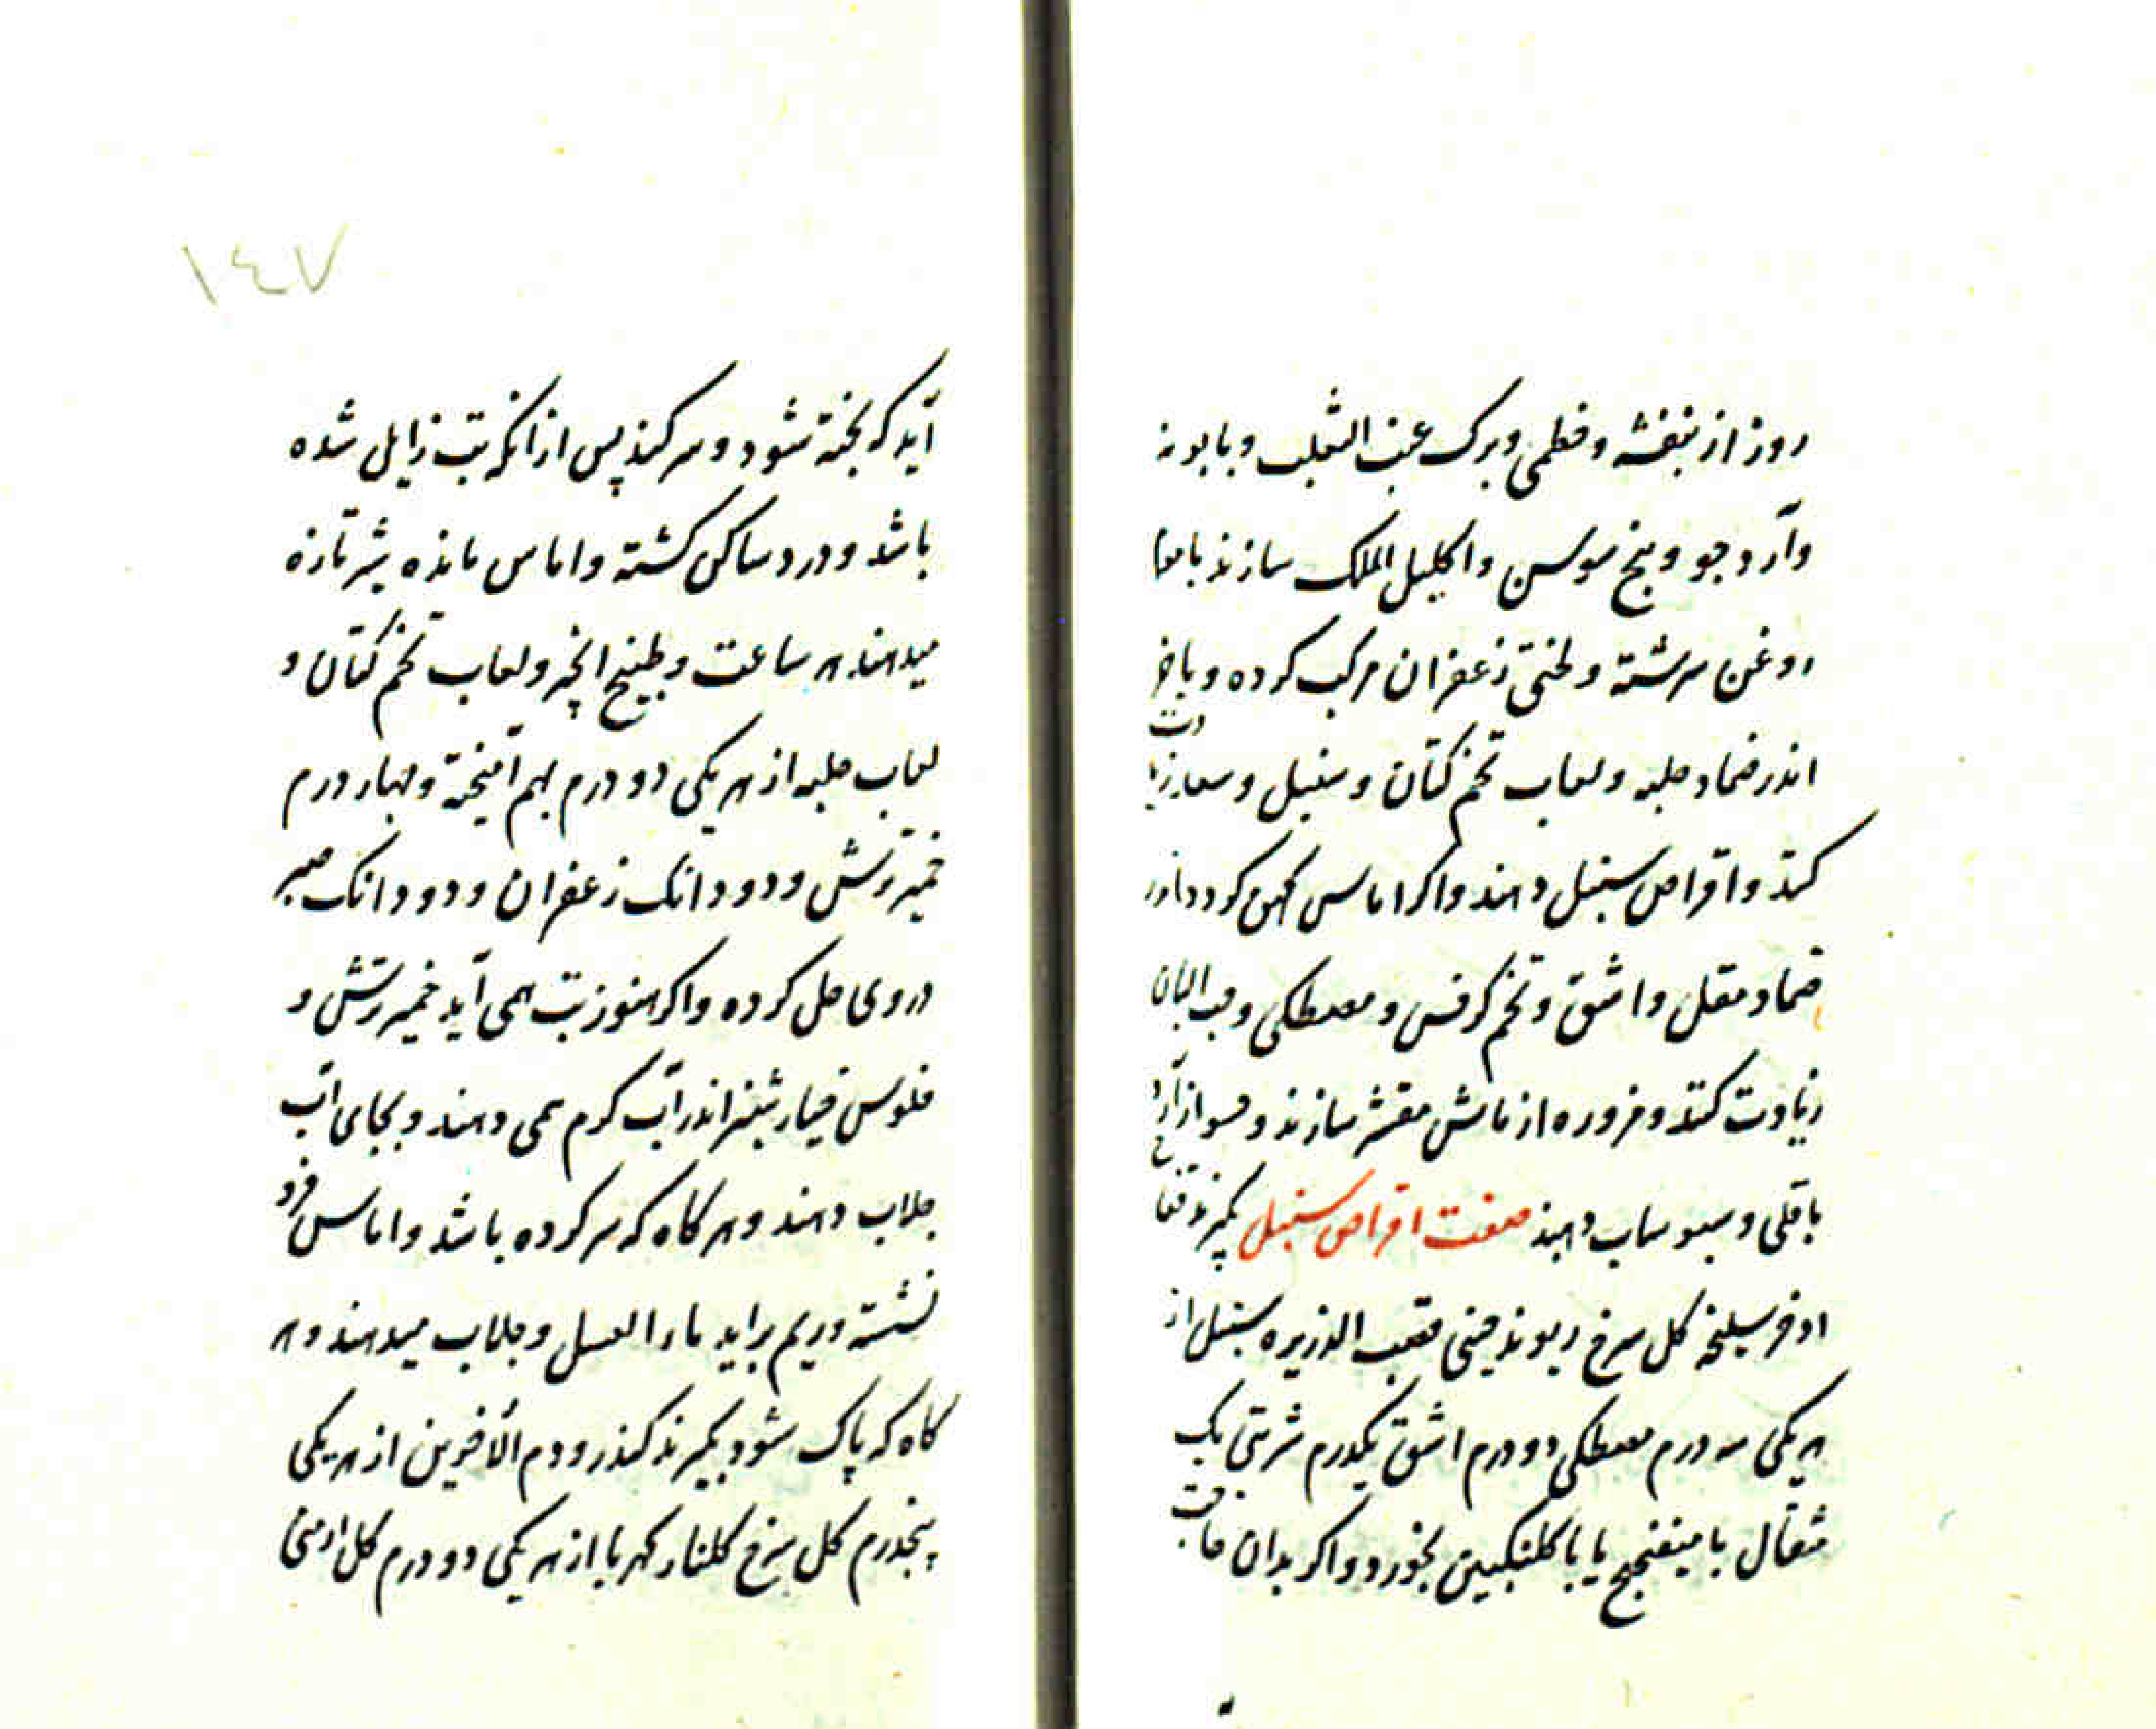 روز از بنفشه و خطمی و برک عنب الثعلب و بابونه
وآرد جو و بیخ سوسن و اکلیل الملک سازند با موم
روغن سرشته و لختی زعفران مرکب کرده و باخر
اندر ضماد حلبه و لعاب تخم کتان و سنبل و سعد زیادت
کنند و اقراص سنبل دهند واکر اماس کهن کردد اندر
ضماد مقل واشق وتخم کرفس و مصطکی وحب البان
زیادت کنند و مزوره از ماش مقشر سازند و حسو از آرد
باقلی و سبوساب دهند صفت اقراص سنبل بکیرند فقاح
اذخر سلیخه کل سرخ ریوند چینی قصب الذریره سنبل از
هریکی سه درم مصطکی دو درم اشق یکدرم شربتی یک
مثقال با میفختج یا با کلنکبین بخورد واکر بدان حاجت
١٤٧
آید که پخته شود و سر کند پس از انکه تب زایل شده
باشد ودرد ساکن کشته واماس مانده شیر تازه
میدهند هر ساعت وطبیخ انجیر و لعاب تخم کتان و
لعاب حلبه از هر یکی دو درم بهم آمیخته و چهار درم
خمیر ترش و دو دانک زعفران و دو دانک صبر
در وی حل کرده واکر هنوز تب همی آید خمیر ترش و
فلوس خیار شنبر اندر آب کرم همی دهند و بجای آب
جلاب دهند و هر کاه که سر کرده باشد واماس فرو
نشسته وریم براید ماء العسل و جلاب میدهند وهر
کاه که پاک شود بکیرند کندر و دم الأخوین از هر یکی
پنجدرم کل سرخ کلنار کهربا از هر یکی دو درم کل ارمنی